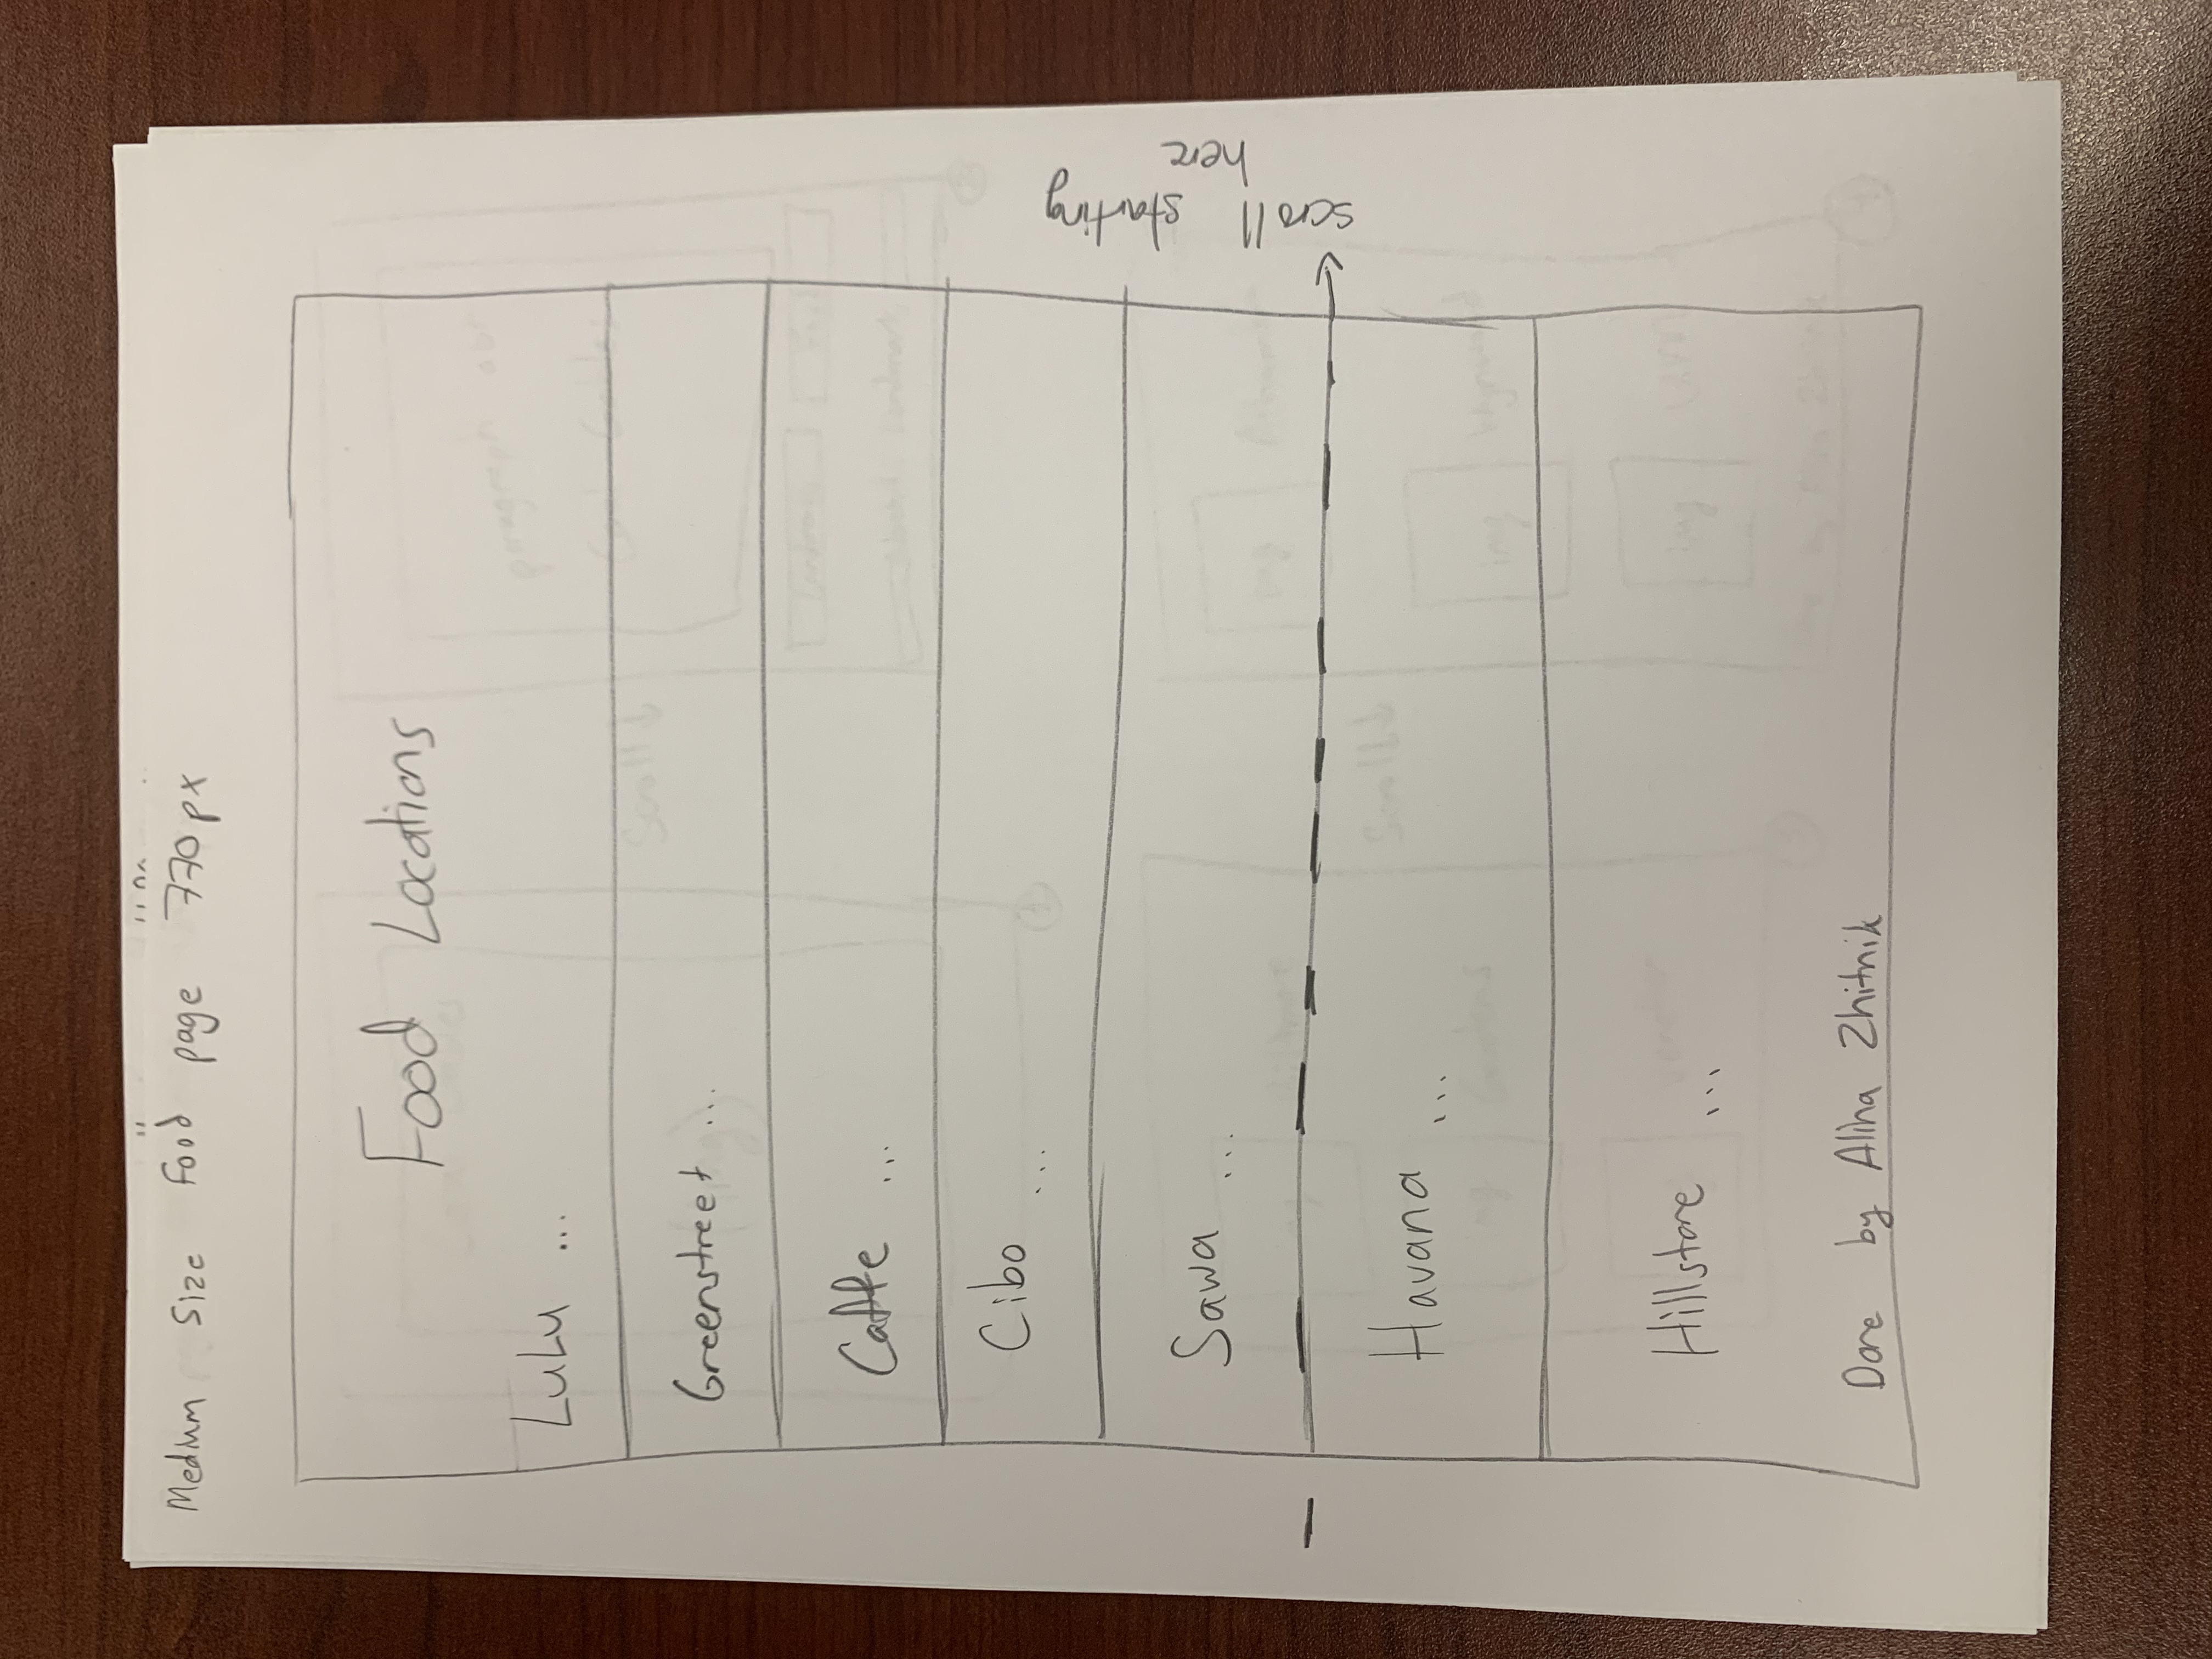 Medium Size Food page 770px
Food Locations
LuLu ...
Greenstreet ...
Caffe ...
Cibo ...
Sawa ...
scroll starting
here
Havana ...
Hillstone ...
Done by Alina Zhitnik